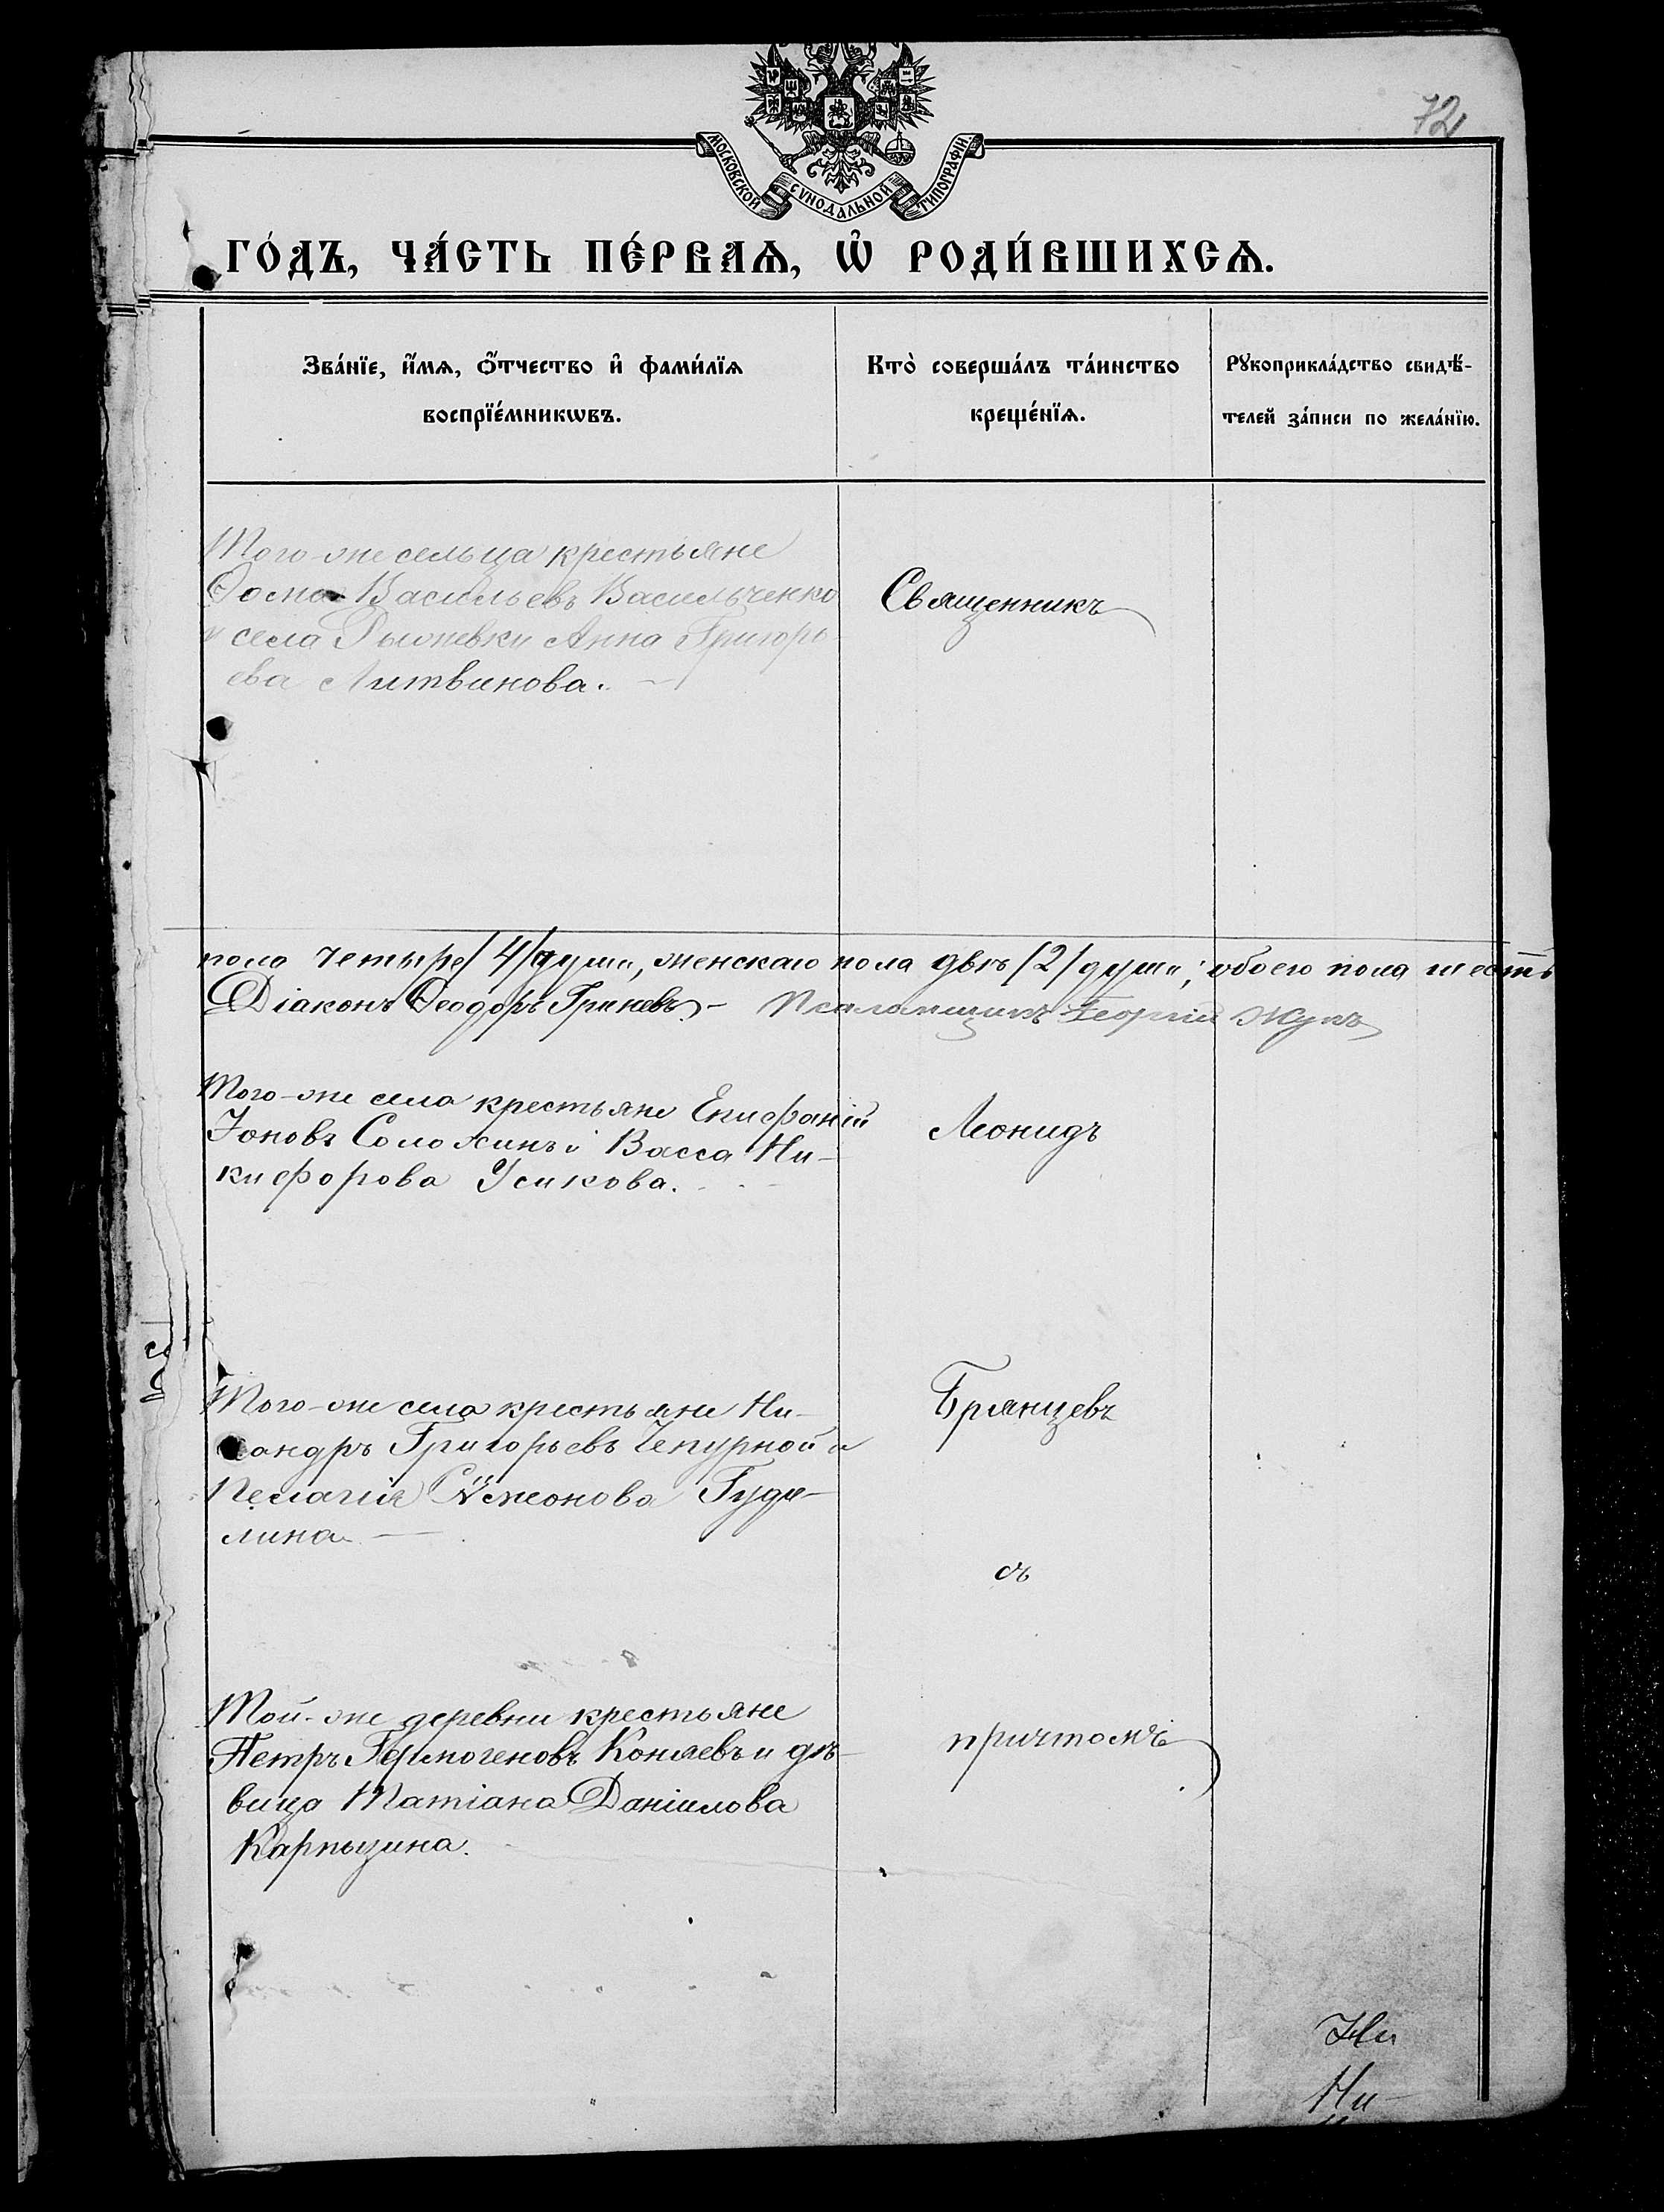 72
МОСКОВСКОЙ СѴНОДАЛЬНОЙ ТИПОГРАФІИ.
ГО́ДЪ, ЧА́СТЬ ПЕ́РВАѦ, Ѽ РОДИ́ВШИХСѦ.
Зва́нїе, и҆́мѧ, ѻ҆́тчество и҆ фами́лїѧ
воспрїе́мникѡвъ.
Кто̀ соверша́лъ та́инство
креще́нїѧ.
Рꙋкоприкла́дство свидѣ́-
телей за́писи по жела́нїю.
Того-же сельца крестьяне
Ѳома Васильевъ Васильченко
и села Рыжевки Анна Григорь
ева Литвинова.
Священникъ
пола четыре /4/ души, женскаго пола двѣ /2/ души; обоего пола шесть
Діаконъ Ѳеодоръ Гриневъ. - Псаломщикъ Георгій Жукъ
Того-же села крестьяне Епифаній
Іоновъ Солохинъ и Васса Ни-
кифорова Усикова.
Леонидъ
Того-же села крестьяне Ни-
кандръ Григорьевъ Чепурной и
Пелагія Сѵмеонова Гуде-
лина
Брянцевъ
съ
Той-же деревни крестьяне
Петръ Гермогеновъ Коняевъ и дѣ-
вица Татіана Даніилова
Карпызина.
причтомъ
Ни
Ни-